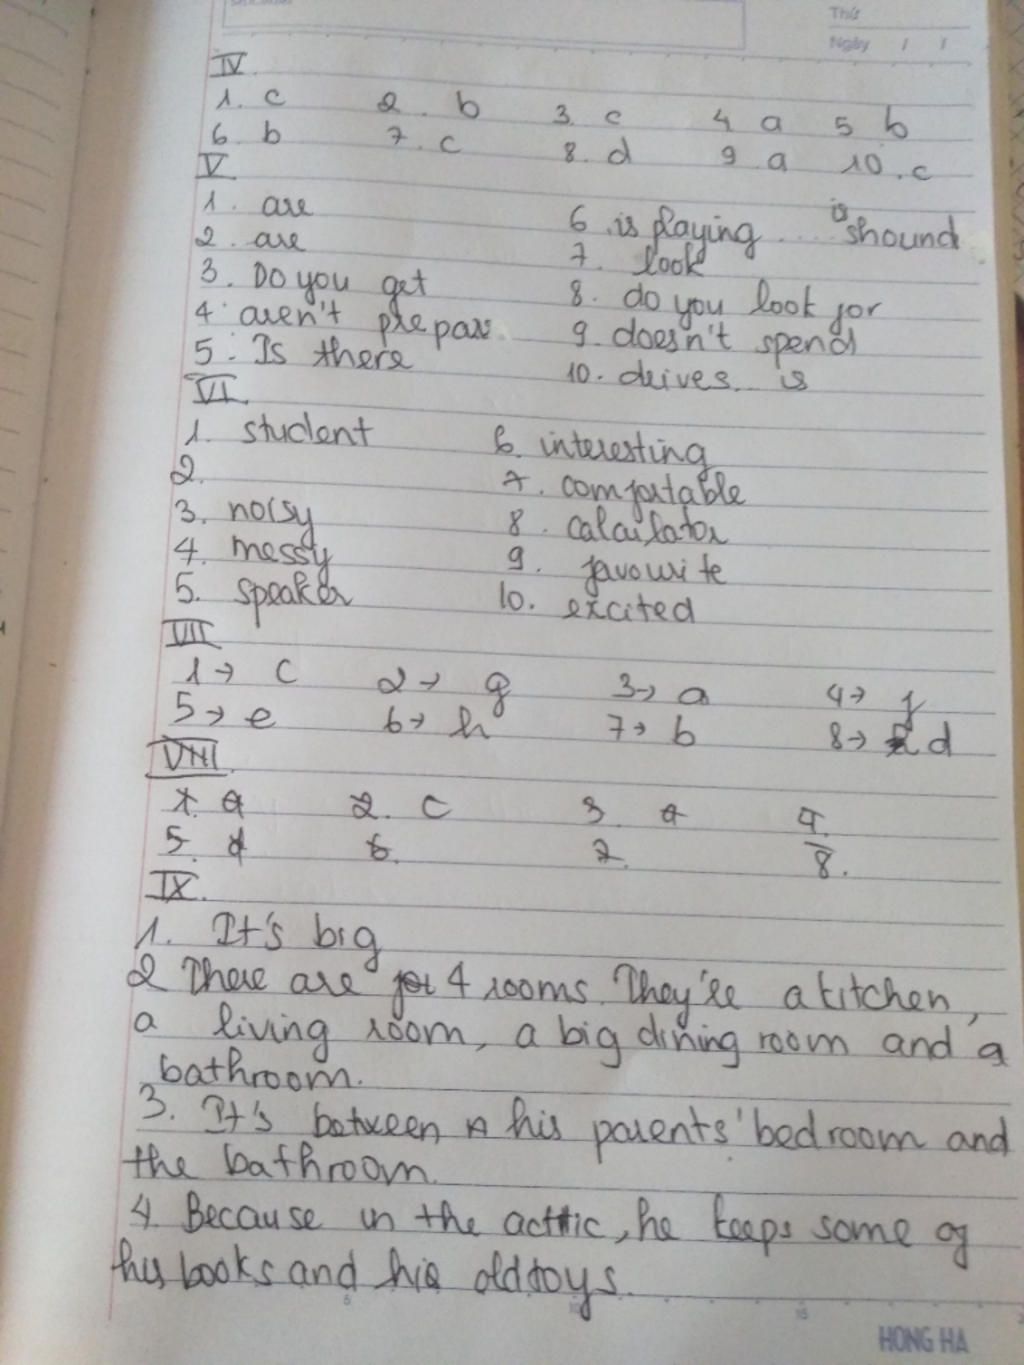 Thứ
Ngày / /
IV
1. c 2. b 3. c 4 a 5 b
6. b 7. c 8. d 9 a 10. c
V
1. are 6. is playing .... is shound
2. are 7. look
3. Do you get 8. do you look for
4. aren't prepare 9. doesn't spend
5. Is there 10. drives... is
VI.
1. student 6. interesting
2. 7. comfortable
3. noisy 8. calculator
4. messy 9. favourite
5. speaker 10. excited
VII
1→ c 2→ g 3→ a 4→ f
5→ e 6→ h 7→ b 8→ d
VIII
1. a 2. c 3. a 4.
5. d 6. 7. 8.
IX.
1. It's big
2 There are 4 rooms. They're a kitchen,
a living room, a big dining room and a
bathroom.
3. It's between his parents' bedroom and
the bathroom.
4. Because in the acttic, he keeps some of
his books and his old toys.
HONG HA